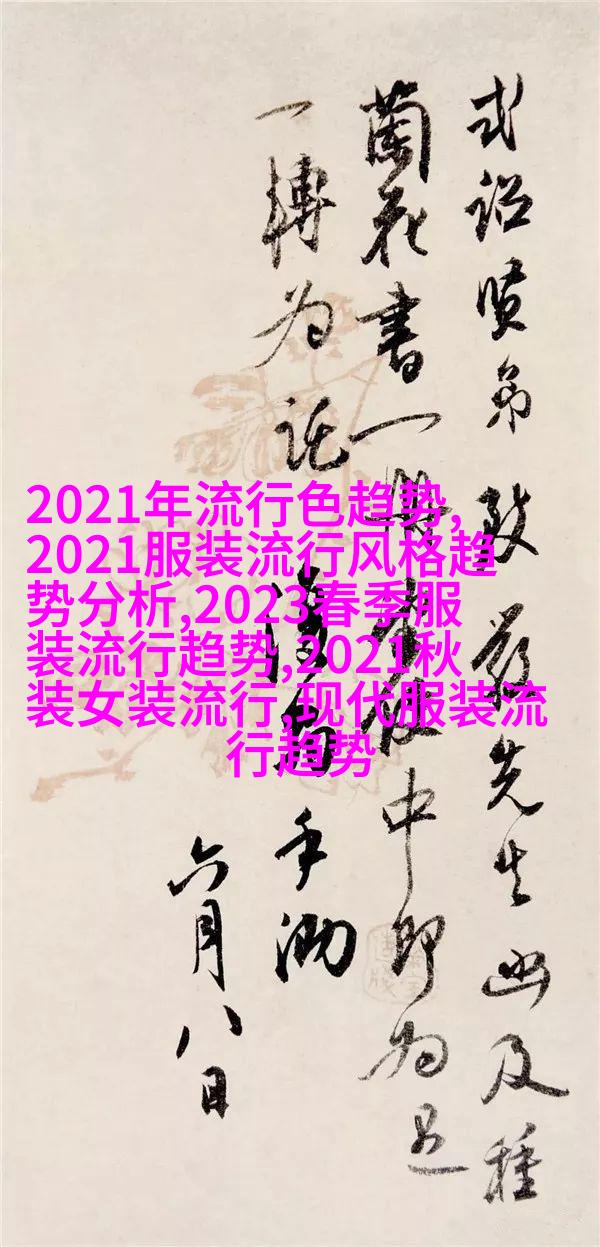 式詔賢弟致嚴先生函及種
蘭花書一中即为
一轉为託手泐
六月八日
2021年流行色趋势,
2021服装流行风格趋
势分析,2023春季服
装流行趋势,2021秋
装女装流行,现代服装流
行趋势